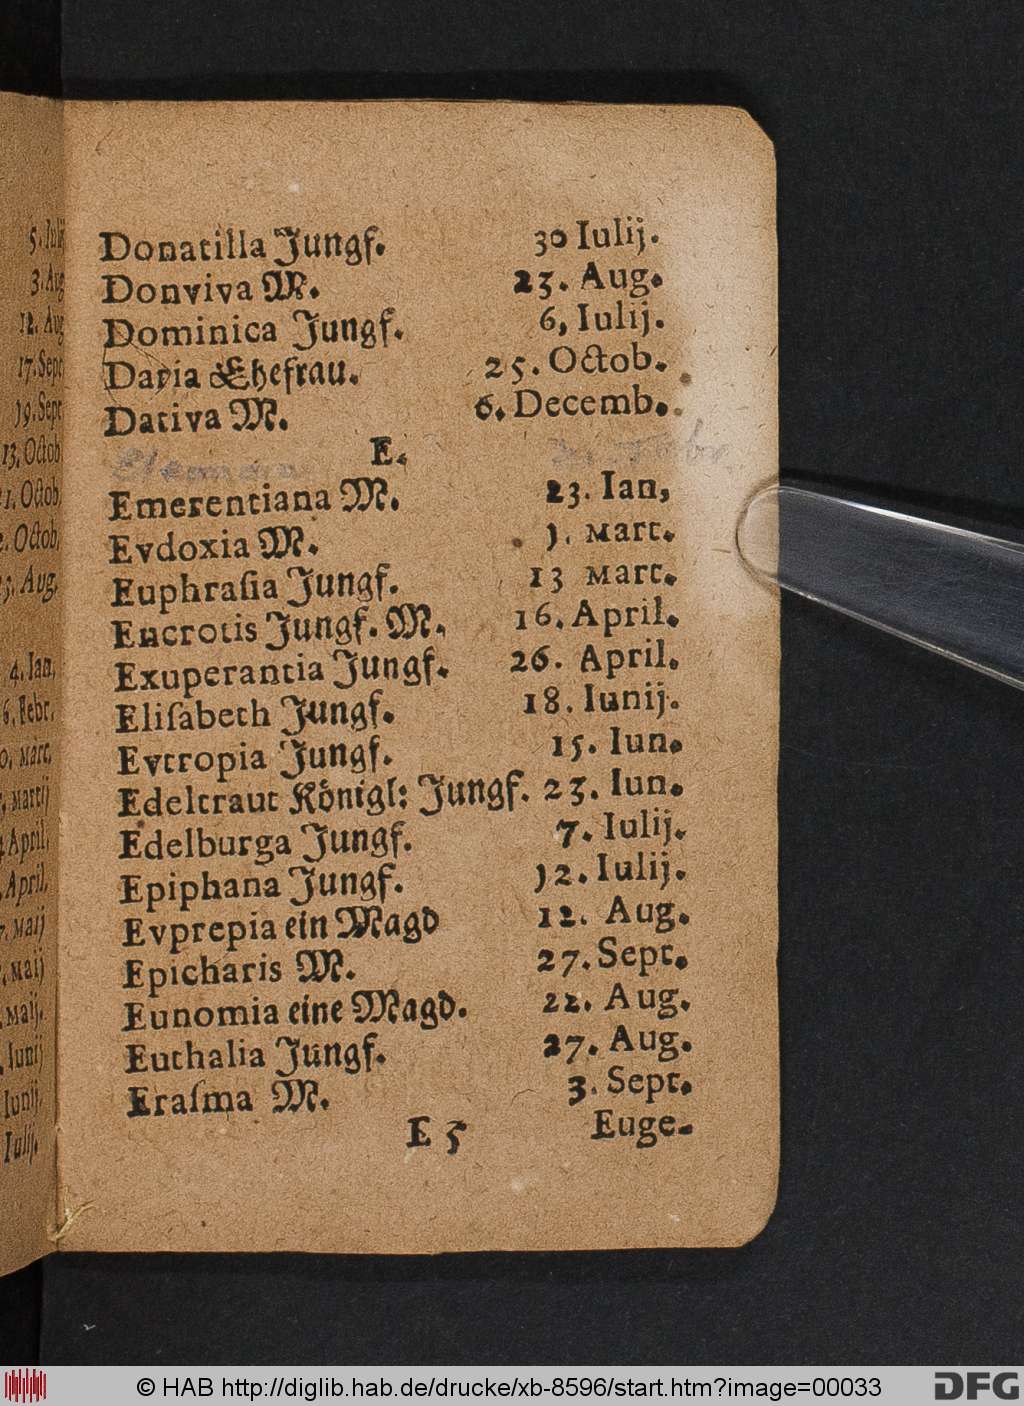 Donatilla Jungf. 30 Iulij.
Donviva M. 23. Aug.
Dominica Jungf. 6, Iulij.
Daria Ehefrau. 25. Octob.
Dativa M. 6. Decemb.
E.
Emerentiana M. 23. Ian,
Evdoxia M. 1. Mart.
Euphraſia Jungf. 13 Mart.
Encrotis Jungf. M. 16. April.
Exuperantia Jungf. 26. April.
Eliſabeth Jungf. 18. Iunij.
Evtropia Jungf. 15. Iun.
Edeltraut Königl: Jungf. 23. Iun.
Edelburga Jungf. 7. Iulij.
Epiphana Jungf. 12. Iulij.
Evprepia ein Magd 12. Aug.
Epicharis M. 27. Sept.
Eunomia eine Magd. 22. Aug.
Euthalia Jungf. 27. Aug.
Eraſma M. 3. Sept.
E 5 Euge-
5. Iulij
3. Aug
12. Aug
17. Sept
19. Sept
13, Octob
1. Octob,
2. Octob,
3. Aug,
4. Ian,
6. Febr,
0, Mart,
Martij
April,
April,
Maij
Maij
Maij.
Iunij
Iunij,
Iulij.
© HAB http://diglib.hab.de/drucke/xb-8596/start.htm?image=00033
DFG